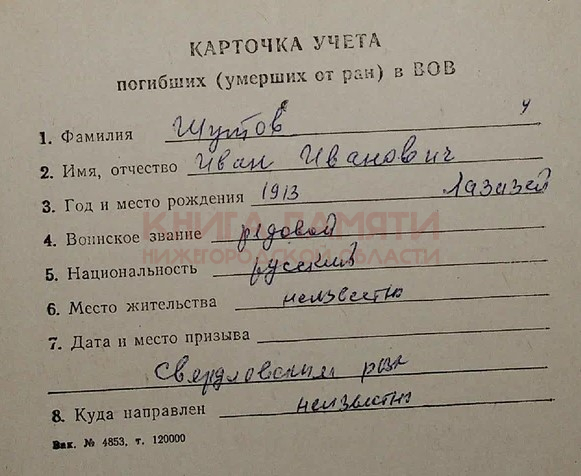 КАРТОЧКА УЧЕТА
погибших (умерших от ран) в ВОВ
ч
1. Фамилия Шутов
2. Имя, отчество Иван Иванович
3. Год и место рождения 1913 Лазазей
КНИГА ПАМЯТИ
4. Воинское звание рядовой
НИЖЕГОРОДСКОЙ ОБЛАСТИ
5. Национальность русский
6. Место жительства неизвестно
7. Дата и место призыва
Свердловским рвк
8. Куда направлен неизвестно
Зак. № 4853, т. 120000